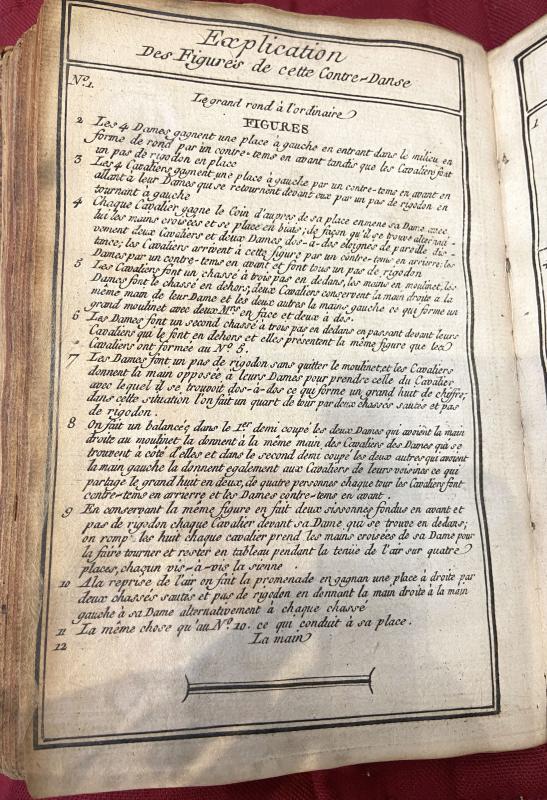 Explication
Des Figures de cette Contre-Danse
No. 1.
Le grand rond à l'ordinaire
FIGURES
2 Les 4 Dames gagnent une place à gauche en entrant dans le milieu en
forme de rond par un contre-tems en avant tandis que les Cavaliers font
un pas de rigodon en place
3 Les 4 Cavaliers gagnent une place à gauche par un contre-tems en avant en
allant à leur Dames qui se retournent devant eux par un pas de rigodon en
tournant à gauche
4 Chaque Cavalier gagne le Coin d'aupres de sa place enmene sa Dame avec
lui les mains croisées et se place en biais; de façon qu'il se trouve alternati-
vement deux Cavaliers et deux Dames dos-à-dos eloignes de pareille dis-
tance; les Cavaliers arrivent à cette figure par un contre-tems en arrierre; les
Dames par un contre-tems en avant et font tous un pas de rigodon
5 Les Cavaliers font un chassé à trois pas en dedans, les mains en moulinet, les
Dames font le chassé en dehors, deux Cavaliers conservent la main droite à la
même main de leur Dame et les deux autres la mains gauche ce qui forme un
grand moulinet avec deux Mrs en face et deux à dos.
6 Les Dames font un second chassé à trois pas en dedans en passant devant leurs
Cavaliers qui le font en dehors et elles presentent la même figure que les
Cavaliers ont formée au No. 5.
7 Les Dames font un pas de rigodon sans quitter le moulinet, et les Cavaliers
donnent la main opposée à leurs Dames pour prendre celle du Cavalier
avec lequel il se trouvoit dos-à-dos ce qui forme un grand huit de chiffre;
dans cette situation l'on fait un quart de tour par deux chassés sautés et pas
de rigodon.
8 On fait un balancés, dans le 1er demi coupé les deux Dames qui avoient la main
droite au moulinet la donnent à la même main des Cavaliers des Dames qui se
trouvent à côté d'elles et dans le second demi coupé les deux autres qui avoient
la main gauche la donnent également aux Cavaliers de leurs voisines ce qui
partage le grand huit en deux, de quatre personnes chaque tour les Cavaliers font
contre-tems en arrierre et les Dames contre-tems en avant.
9 En conservant la meme figure en fait deux sissonnes fondus en avant et
pas de rigodon chaque Cavalier devant sa Dame qui se trouve en dedans;
on romp les huit chaque cavalier prend les mains croisées de sa Dame pour
la faire tourner et rester en tableau pendant la tenue de l'air sur quatre
places, chaqun vis-à-vis la sienne.
10 A la reprise de l'air on fait la promenade en gagnan une place à droite par
deux chassés sautés et pas de rigodon en donnant la main droite à la main
gauche à sa Dame alternativement à chaque chassé
11 La même chose qu'au No. 10. ce qui conduit à sa place.
12 La main
1